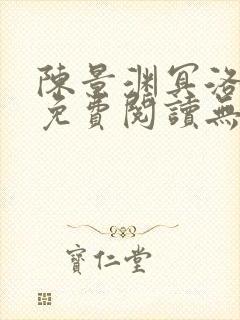 陳景淵冥洛
免費閱讀無
寶仁堂